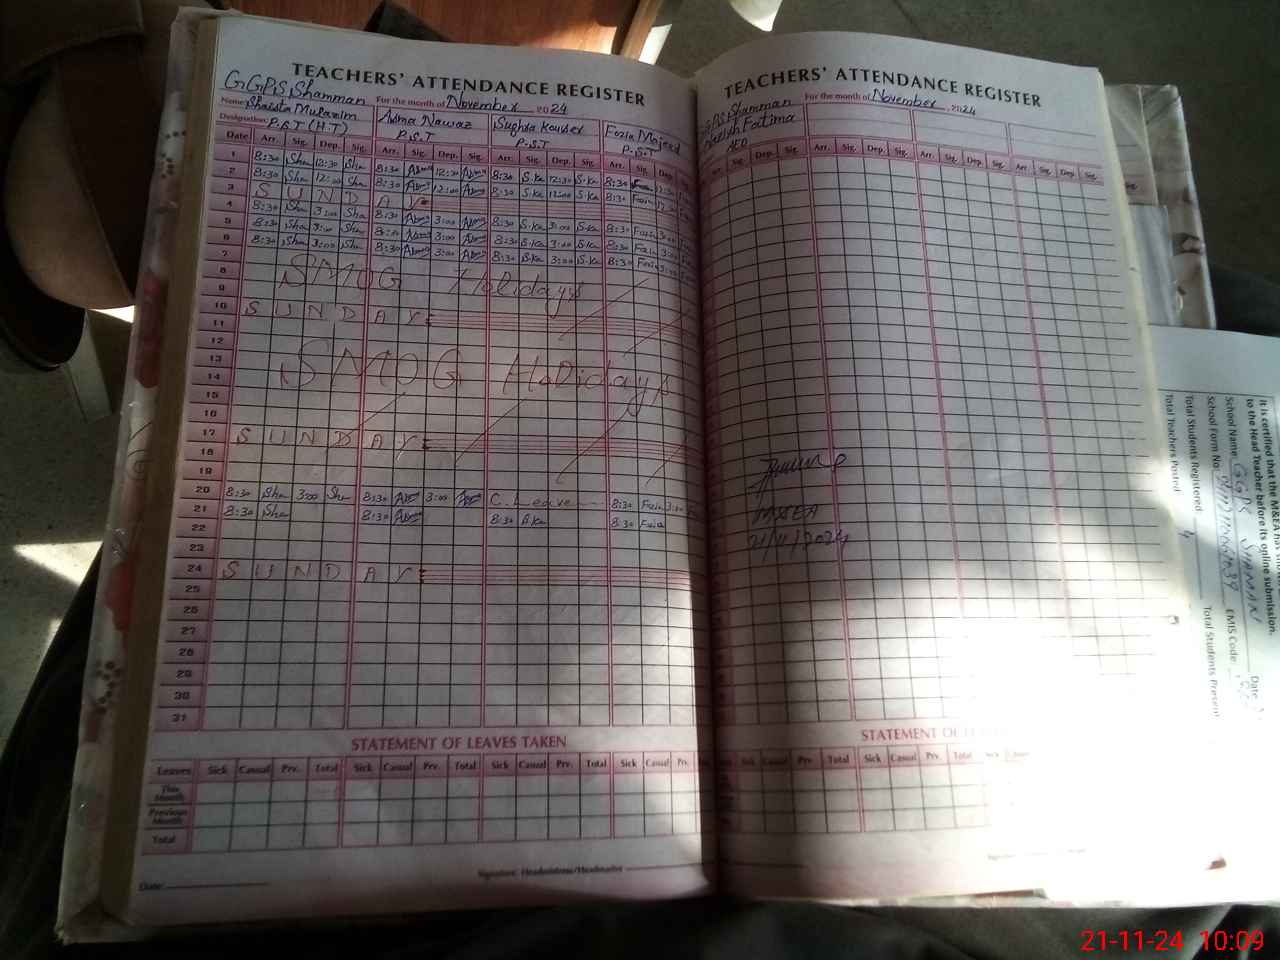 TEACHERS' ATTENDANCE REGISTER
GGPS, Shamman For the month of November 2024
Name: Shaista Mulazim Asma Nawaz Sughra Kousar Fozia Majeed
Designation: P.S.T (H.T) P.S.T P.S.T P.S.T
Date Arr. Sig. Dep. Sig. Arr. Sig. Dep. Sig. Arr. Sig. Dep. Sig. Arr. Sig. Dep.
1 8:30 Sha 12:30 Sha 8:30 Asma 12:30 Asma 8:30 S.Ka 12:30 S.Ka 8:30
2 8:30 Sha 12:00 Sha 8:30 Asma 12:00 Asma 8:30 S.Ka 12:00 S.Ka 8:30
3 SUNDAY
4 8:30 Sha 3:00 Sha 8:30 Asma 3:00 Asma 8:30 S.Ka 3:00 S.Ka 8:30
5 8:30 Sha 3:00 Sha 8:30 Asma 3:00 Asma 8:30 S.Ka 3:00 S.Ka 8:30
6 8:30 Sha 3:00 Sha 8:30 Asma 3:00 Asma 8:30 S.Ka 3:00 S.Ka 8:30
7
8 SMOG Holidays
9
10 SUNDAY
11
12
13 SMOG Holidays
14
15
16
17 SUNDAY
18
19
20 8:30 Sha 3:00 Sha 8:30 Asma 3:00 Asma C. Leave 8:30 Fozia
21 8:30 Sha 8:30 Asma 8:30 S.Ka 8:30 Fozia
22
23
24 SUNDAY
25
26
27
28
29
30
31
STATEMENT OF LEAVES TAKEN
Leaves Sick Casual Prv. Total Sick Casual Prv. Total Sick Casual Prv. Total Sick Casual Prv.
This Month
Previous Month
Total
Date: Signature: Headmistress/Headmaster
TEACHERS' ATTENDANCE REGISTER
GGPS, Shamman For the month of November, 2024
Fatima
AEO
Sig. Dep. Sig. Arr. Sig. Dep. Sig. Arr. Sig. Dep. Sig. Arr. Sig. Dep. Sig.
MEA
21/11/2024
STATEMENT OF
Sick Casual Prv. Total Sick Casual Prv. Total
It is certified that the M&EA has
to the Head Teacher before its online submission.
School Name: GGPS SHAMAN Date
School Form No EMIS Code
Total Students Registered Total Students Present
Total Teachers Posted 4
21-11-24 10:09